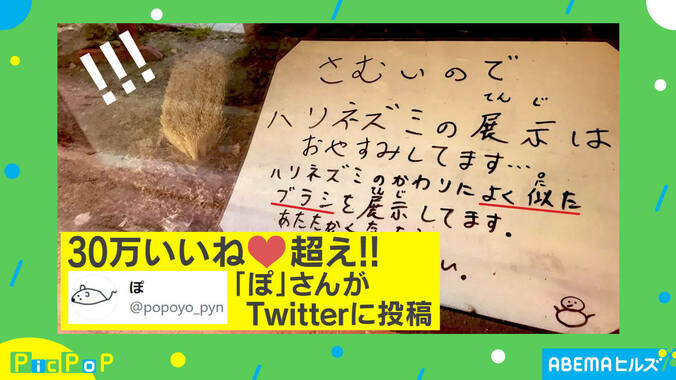 !!!
さむいので
てんじ
ハリネズミの展示は
おやすみしてます…
ハリネズミのかわりによく似た
に
ブラシを展示してます。
てんじ
あたたかくな
い。
30万いいね❤超え!!
ぽ
@popoyo_pyn
「ぽ」さんが
Twitterに投稿
PicPoP
ABEMAヒルズ